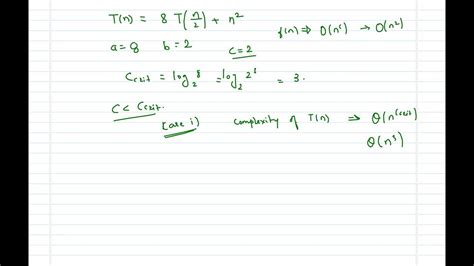 T(n) = 8 T(n/2) + n²
f(n) ⇒ O(nᶜ) → O(n²)
a = 8 b = 2 c = 2
Ccrit = log₂ 8 = log₂ 2³ = 3.
C < Ccrit.
(case i) complexity of T(n) ⇒ θ(n^Ccrit)
θ(n³)